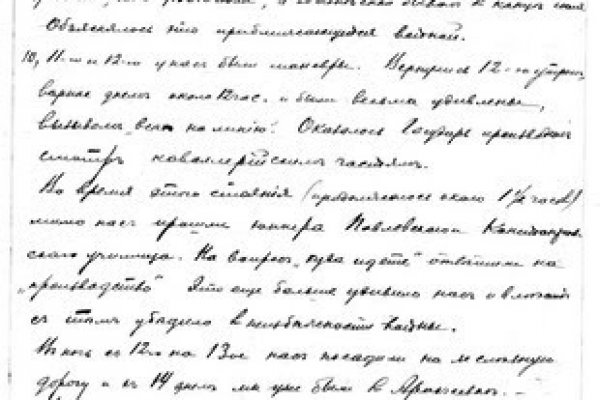 Объяснялось это приближающейся войной.
10, 11-го и 12-го у нас были маневры. Вернулись 12-го утром,
вернее днем около 12 час. и были весьма удивлены,
вызовом „всех на линию". Оказалось Государь производил
смотр кавалерийским частям.
Во время этого стояния (продолжалось около 1½ часов)
мимо нас прошли юнкера Павловского и
училища. На вопрос „куда идете" ответили на
„производство" Это еще больше удивило нас и
с тем убедило в неизбежности войны.
В ночь с 12-го на 13-ое нас посадили на железную
дорогу и 14 днем мы уже были в